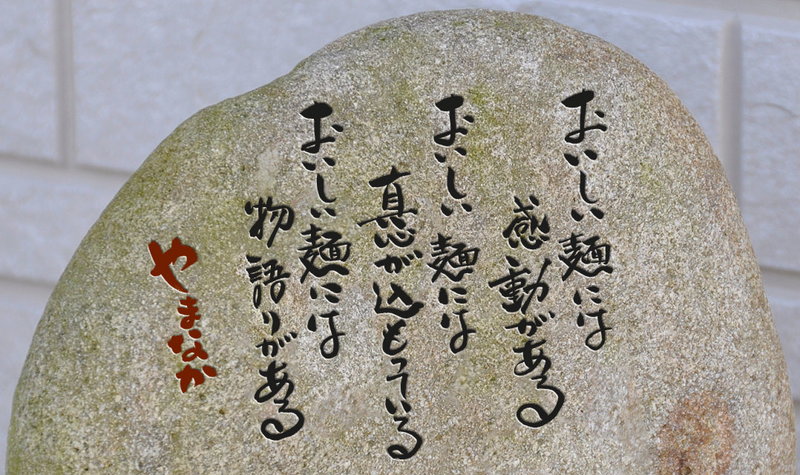 おいしい麺には
感動がある
おいしい麺には
真心が込もっている
おいしい麺には
物語りがある
やまなか